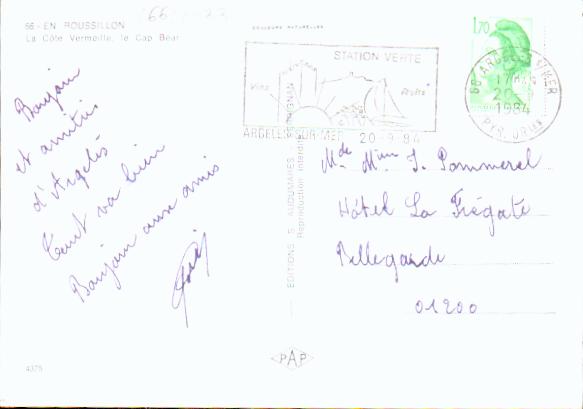 66 - EN ROUSSILLON
La Côte Vermeille, le Cap Béar
COULEURS NATURELLES
Bonjour
et amitiés
d'Argelès
Tout va bien
Bonjour aux amis
EDITIONS S. AUDUMARES PERPIGNAN
Reproduction interdite
STATION VERTE
Vins
Fruits
ARGELES-SUR-MER 20-9-84
1,70
66 ARGELES S/MER
17H
20-9
1984
PYR. ORIENT.
J. Pommerel
Hôtel La Frégate
Bellegarde
01200
4375
PAP